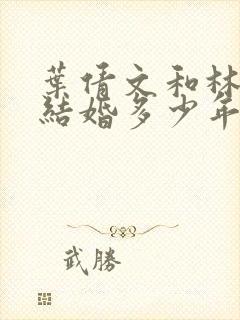 葉倩文和林
結婚多少年
武勝